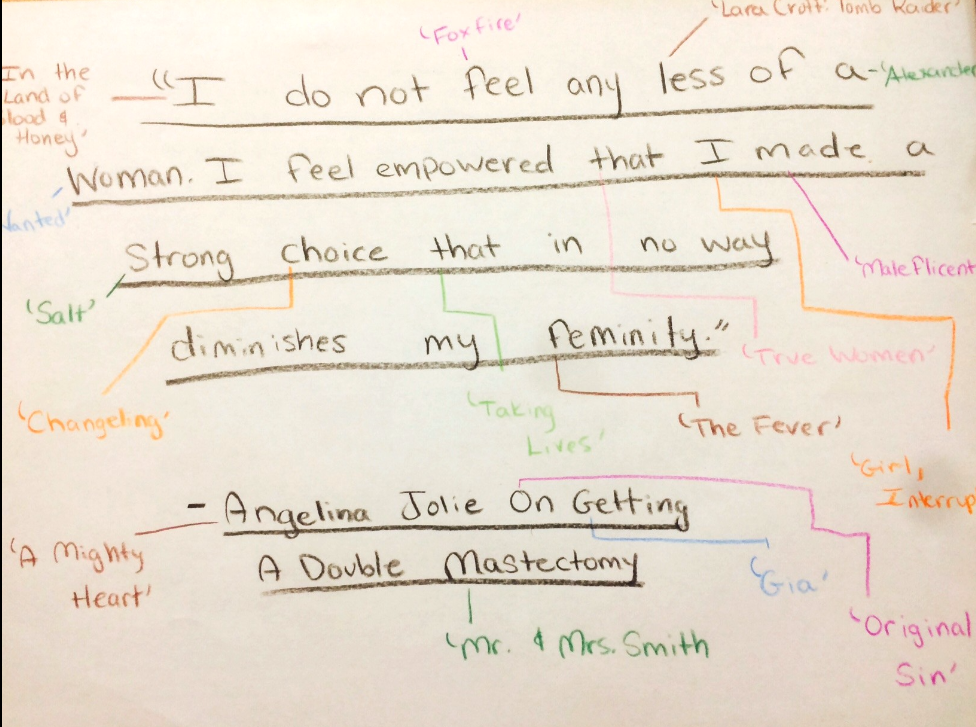 'Lara Croft: Tomb Raider'
'Foxfire'
In the
Land of
lood &
Honey'
"I do not feel any less of a
-'Alexander
Woman. I feel empowered that I made a
Wanted'
Strong choice that in no way
'Maleficent
'Salt'
diminishes my feminity."
'True Women'
'Changeling'
'Taking
Lives'
'The Fever'
'Girl,
Interrup
- Angelina Jolie On Getting
'A Mighty
Heart'
A Double Mastectomy
'Gia'
'Original
Sin'
'Mr. & Mrs. Smith